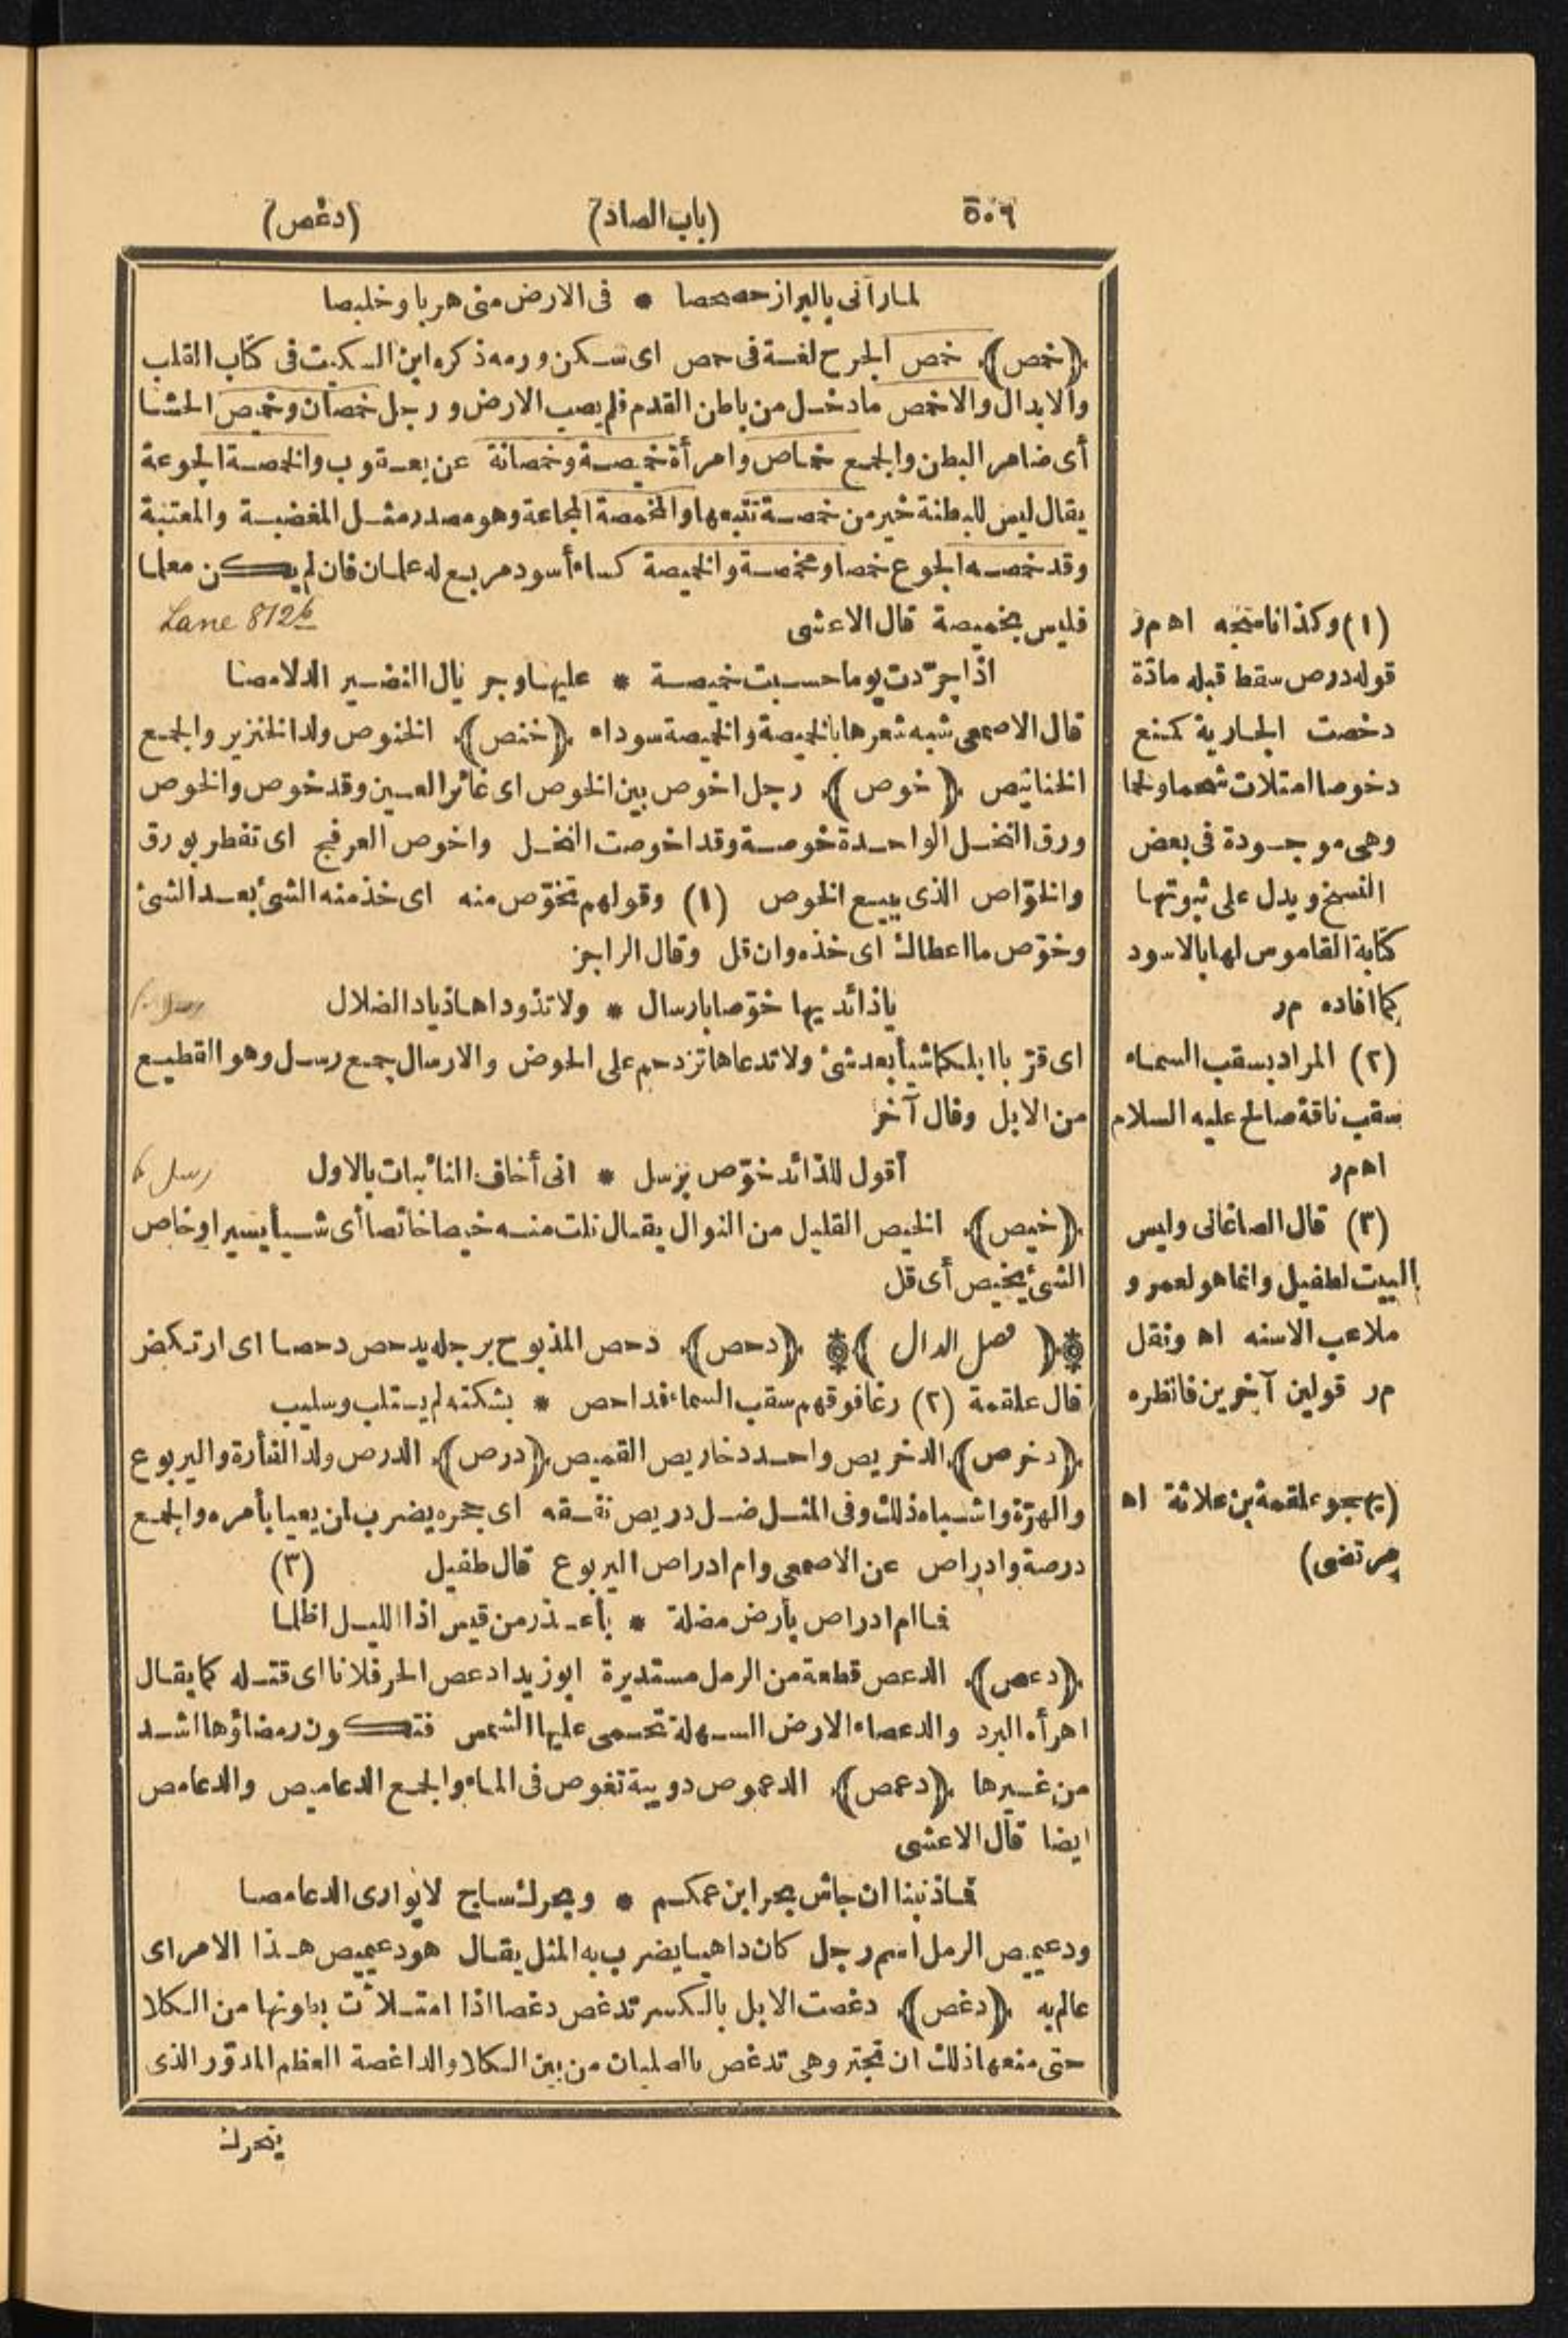 ٥٠٦ (باب الصاد) (دغص)
لما رآنى بالبراز حصحصا * فى الارض منى هربا وخلبصا
(خمص) خمص الجرح لغة فى حمص اى سكن ورمه ذكره ابن السكيت فى كتاب القلب
والابدال والاخمص مادخل من باطن القدم فلم يصب الارض ورجل خمصان وخميص الحشا
أى ضامر البطن والجمع خماص وامرأة خميصة وخمصانة عن يعقوب والخمصة الجوعة
يقال ليس للبطنة خير من خمصة تتبعها والمخمصة المجاعة وهو مصدر مثل المغضبة والمعتبة
وقد خمصه الجوع خمصا ومخمصة والخميصة كساء أسود مربع له علمان فان لم يكن معلما
فليس بخميصة قال الاعشى Lane 812b
اذا جرّدت يوما حسبت خميصة * عليها وجريال النضير الدلامصا
قال الاصمعى شبه شعرها بالخميصة والخميصة سوداء (خنص) الخنوص ولد الخنزير والجمع
الخنانيص (خوص) رجل اخوص بين الخوص اى غائر العين وقد خوص والخوص
ورق النخل الواحدة خوصة وقد اخوصت النخل واخوص العرفج اى تفطر بورق
والخوّاص الذى يبيع الخوص (١) وقولهم تخوّص منه اى خذ منه الشئ بعد الشئ
وخوّص ما اعطاك اى خذه وان قل وقال الراجز
ياذائديها خوّصا بارسال * ولا تذوداها ذياد الضلال
اى قرّبا ابلكما شيأ بعد شئ ولا تدعاها تزدحم على الحوض والارسال جمع رسل وهو القطيع
من الابل وقال آخر
أقول للذائد خوّص برسل * انى أخاف النائبات بالاول رسل
(خيص) الخيص القليل من النوال يقال نلت منه خيصا خائصا أى شيأ يسيرا وخاص
الشئ يخيص أى قل
(فصل الدال) (دحص) دحص المذبوح برجله يدحص دحصا اى ارتكض
قال علقمة (٢) رغا فوقهم سقب السماء فداحص * بشكته لم يستلب وسليب
(دخرص) الدخريص واحد دخاريص القميص (درص) الدرص ولد الفأرة واليربوع
والهرّة واشباه ذلك وفى المثل ضل دريص نفقه اى جحره يضرب لمن يعيا بأمره والجمع
درصة وادراص عن الاصمعى وام ادراص اليربوع قال طفيل (٣)
فما ام ادراص بأرض مضلة * بأغدر من قيس اذا الليل اظلما
(دعص) الدعص قطعة من الرمل مستديرة ابو زيد ادعص الحر فلانا اى قتله كما يقال
اهرأه البرد والدعصاء الارض السهلة تحمى عليها الشمس فتكون رمضاؤها اشد
من غيرها (دعمص) الدعموص دويبة تغوص فى الماء والجمع الدعاميص والدعامص
ايضا قال الاعشى
فما ذنبنا ان جاش بحر ابن عمكم * وبحرك ساج لا يوارى الدعامصا
ودعيميص الرمل اسم رجل كان داهيا يضرب به المثل يقال هو دعيميص هذا الامر اى
عالم به (دغص) دغصت الابل بالكسر تدغص دغصا اذا امتلأت بطونها من الكلا
حتى منعها ذلك ان تجتر وهى تدغص بالصليان من بين الكلا والداغصة العظم المدوّر الذى
يتحرك
(١) وكذا نا متجه اه م ر
قوله درص سقط قبله مادّة
دخصت الجارية كمنع
دخوصا امتلات شحما ولحما
وهى موجودة فى بعض
النسخ ويدل على ثبوتها
كتابة القاموس لها بالاسود
كما افاده م ر
(٢) المراد بسقب السماء
سقب ناقة صالح عليه السلام
اه م ر
(٣) قال الصاغانى وليس
البيت لطفيل وانما هو لعمرو
ملاعب الاسنه اه ونقل
م ر قولين آخرين فانظره
يهجو علقمة بن علاثة اه
مرتضى)